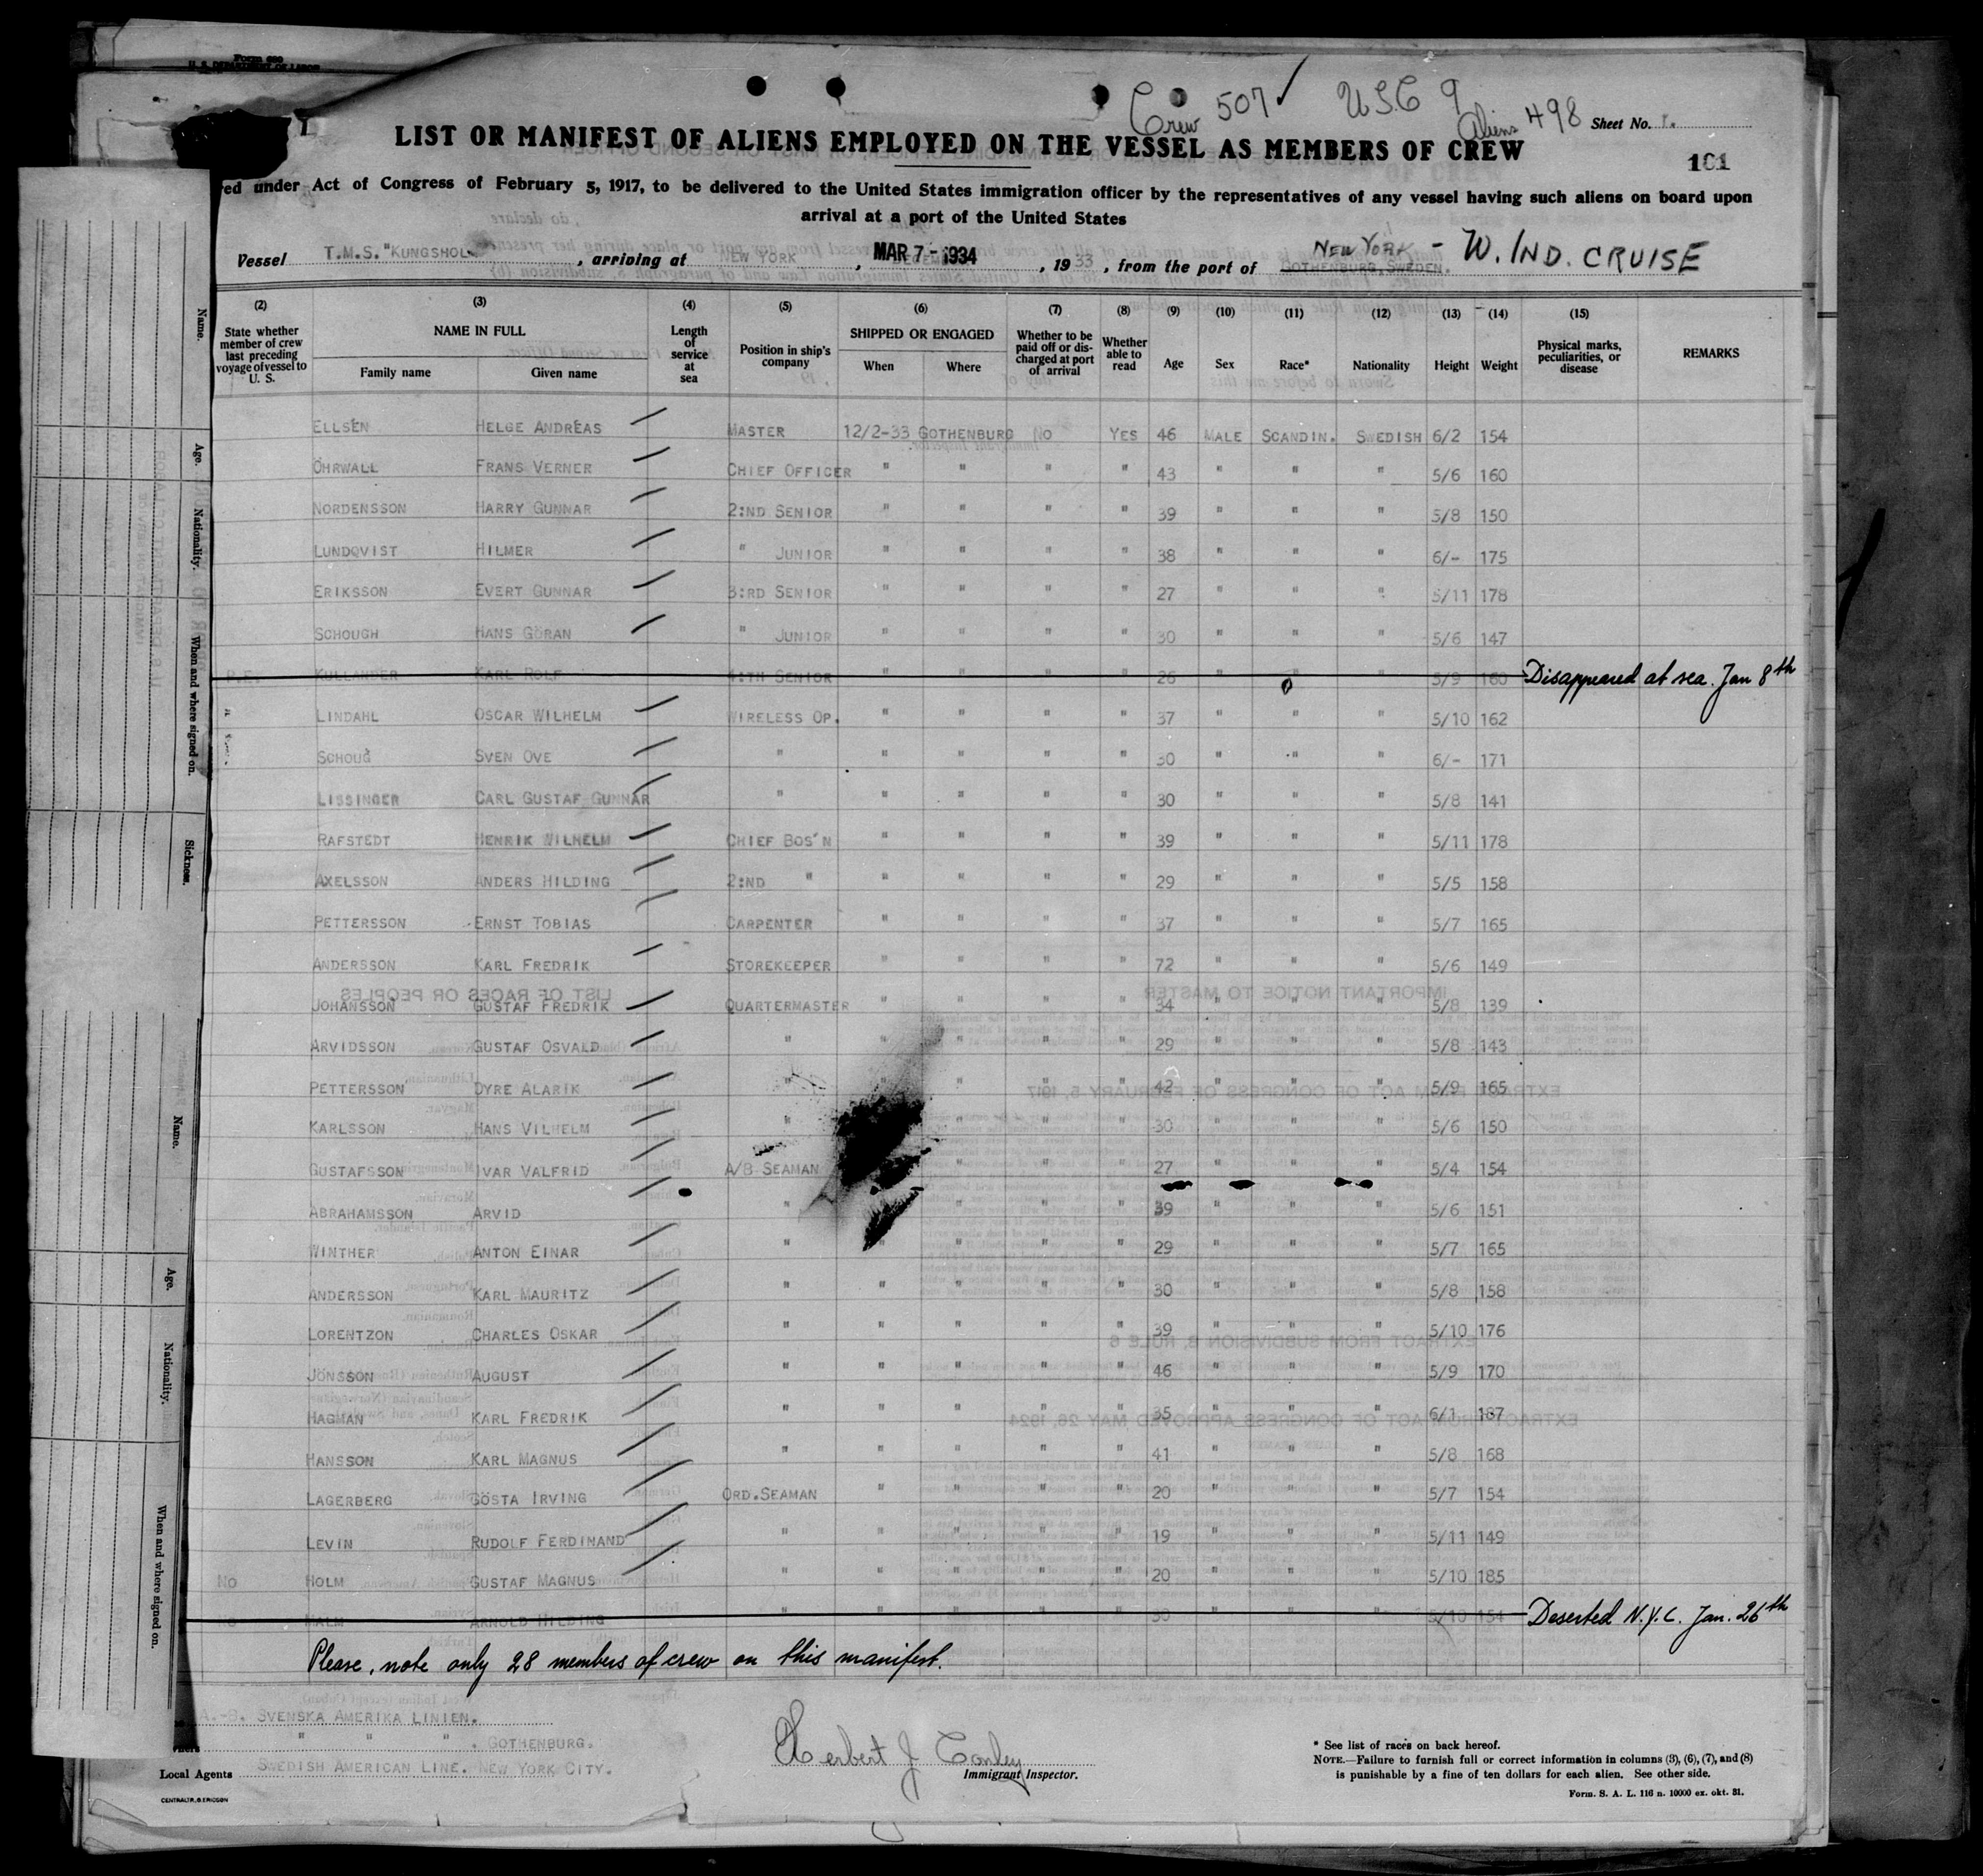 Form 680
U. S. DEPARTMENT OF LABOR
Crew 507 ✓ USC 9
Aliens 498 Sheet No. 1.
LIST OR MANIFEST OF ALIENS EMPLOYED ON THE VESSEL AS MEMBERS OF CREW
101
under Act of Congress of February 5, 1917, to be delivered to the United States immigration officer by the representatives of any vessel having such aliens on board upon
arrival at a port of the United States
Vessel T.M.S. "KUNGSHOL , arriving at NEW YORK , MAR 7 - 1934 , 1933 , from the port of NEW YORK - W. IND. CRUISE
GOTHENBURG, SWEDEN.
(2) (3) (4) (5) (6) (7) (8) (9) (10) (11) (12) (13) (14) (15)
State whether member of crew last preceding voyage of vessel to U. S. NAME IN FULL Family name Given name Length of service at sea Position in ship's company SHIPPED OR ENGAGED When Where Whether to be paid off or discharged at port of arrival Whether able to read Age Sex Race* Nationality Height Weight Physical marks, peculiarities, or disease REMARKS
ELLSÉN HELGE ANDRÉAS MASTER 12/2-33 GOTHENBURG NO YES 46 MALE SCANDIN. SWEDISH 6/2 154
ÖHRWALL FRANS VERNER CHIEF OFFICER " " " " 43 " " " 5/6 160
NORDENSSON HARRY GUNNAR 2:ND SENIOR " " " " 39 " " " 5/8 150
LUNDQVIST HILMER " JUNIOR " " " " 38 " " " 6/- 175
ERIKSSON EVERT GUNNAR 3:RD SENIOR " " " " 27 " " " 5/11 178
SCHOUGH HANS GÖRAN " JUNIOR " " " " 30 " " " 5/6 147
P.E. KULLANDER KARL ROLF 4:TH SENIOR " " " " 26 " " " 5/9 160 Disappeared at sea. Jan 8th
LINDAHL OSCAR WILHELM WIRELESS OP. " " " " 37 " " " 5/10 162
SCHOUG SVEN OVE " " " " " 30 " " " 6/- 171
LISSINGER CARL GUSTAF GUNNAR " " " " " 30 " " " 5/8 141
RAFSTEDT HENRIK WILHELM CHIEF BOS'N " " " " 39 " " " 5/11 178
AXELSSON ANDERS HILDING 2:ND " " " " " 29 " " " 5/5 158
PETTERSSON ERNST TOBIAS CARPENTER " " " " 37 " " " 5/7 165
ANDERSSON KARL FREDRIK STOREKEEPER " " " " 72 " " " 5/6 149
JOHANSSON GUSTAF FREDRIK QUARTERMASTER " " " " 34 " " " 5/8 139
ARVIDSSON GUSTAF OSVALD " " " " " 29 " " " 5/8 143
PETTERSSON DYRE ALARIK " " " " " 42 " " " 5/9 165
KARLSSON HANS VILHELM " " " " 30 " " " 5/6 150
GUSTAFSSON IVAR VALFRID A/B SEAMAN " " " 27 " " " 5/4 154
ABRAHAMSSON ARVID " " " " 39 " " " 5/6 151
WINTHER ANTON EINAR " " " " " 29 " " " 5/7 165
ANDERSSON KARL MAURITZ " " " " " 30 " " " 5/8 158
LORENTZON CHARLES OSKAR " " " " " 39 " " " 5/10 176
JÖNSSON AUGUST " " " " " 46 " " " 5/9 170
HAGMAN KARL FREDRIK " " " " " 35 " " " 6/1 187
HANSSON KARL MAGNUS " " " " " 41 " " " 5/8 168
LAGERBERG GÖSTA IRVING ORD.SEAMAN " " " " 20 " " " 5/7 154
LEVIN RUDOLF FERDINAND " " " " " 19 " " " 5/11 149
NO HOLM GUSTAF MAGNUS " " " " " 20 " " " 5/10 185
MALM ARNOLD HILDING " " " " " 30 " " " 5/10 154 Deserted N.Y.C. Jan. 26th
Please, note only 28 members of crew on this manifest.
A.-B. SVENSKA AMERIKA LINIEN.
" " " . GOTHENBURG.
Local Agents SWEDISH AMERICAN LINE. NEW YORK CITY.
CENTRALTR. G. ERICSON
Herbert J Conley
Immigrant Inspector.
* See list of races on back hereof.
NOTE.—Failure to furnish full or correct information in columns (3), (6), (7), and (8)
is punishable by a fine of ten dollars for each alien. See other side.
Form. S. A. L. 116 n. 10000 ex. okt. 31.
Name.
Age.
Nationality.
When and where signed on.
Sickness.
Name.
Age.
Nationality.
When and where signed on.